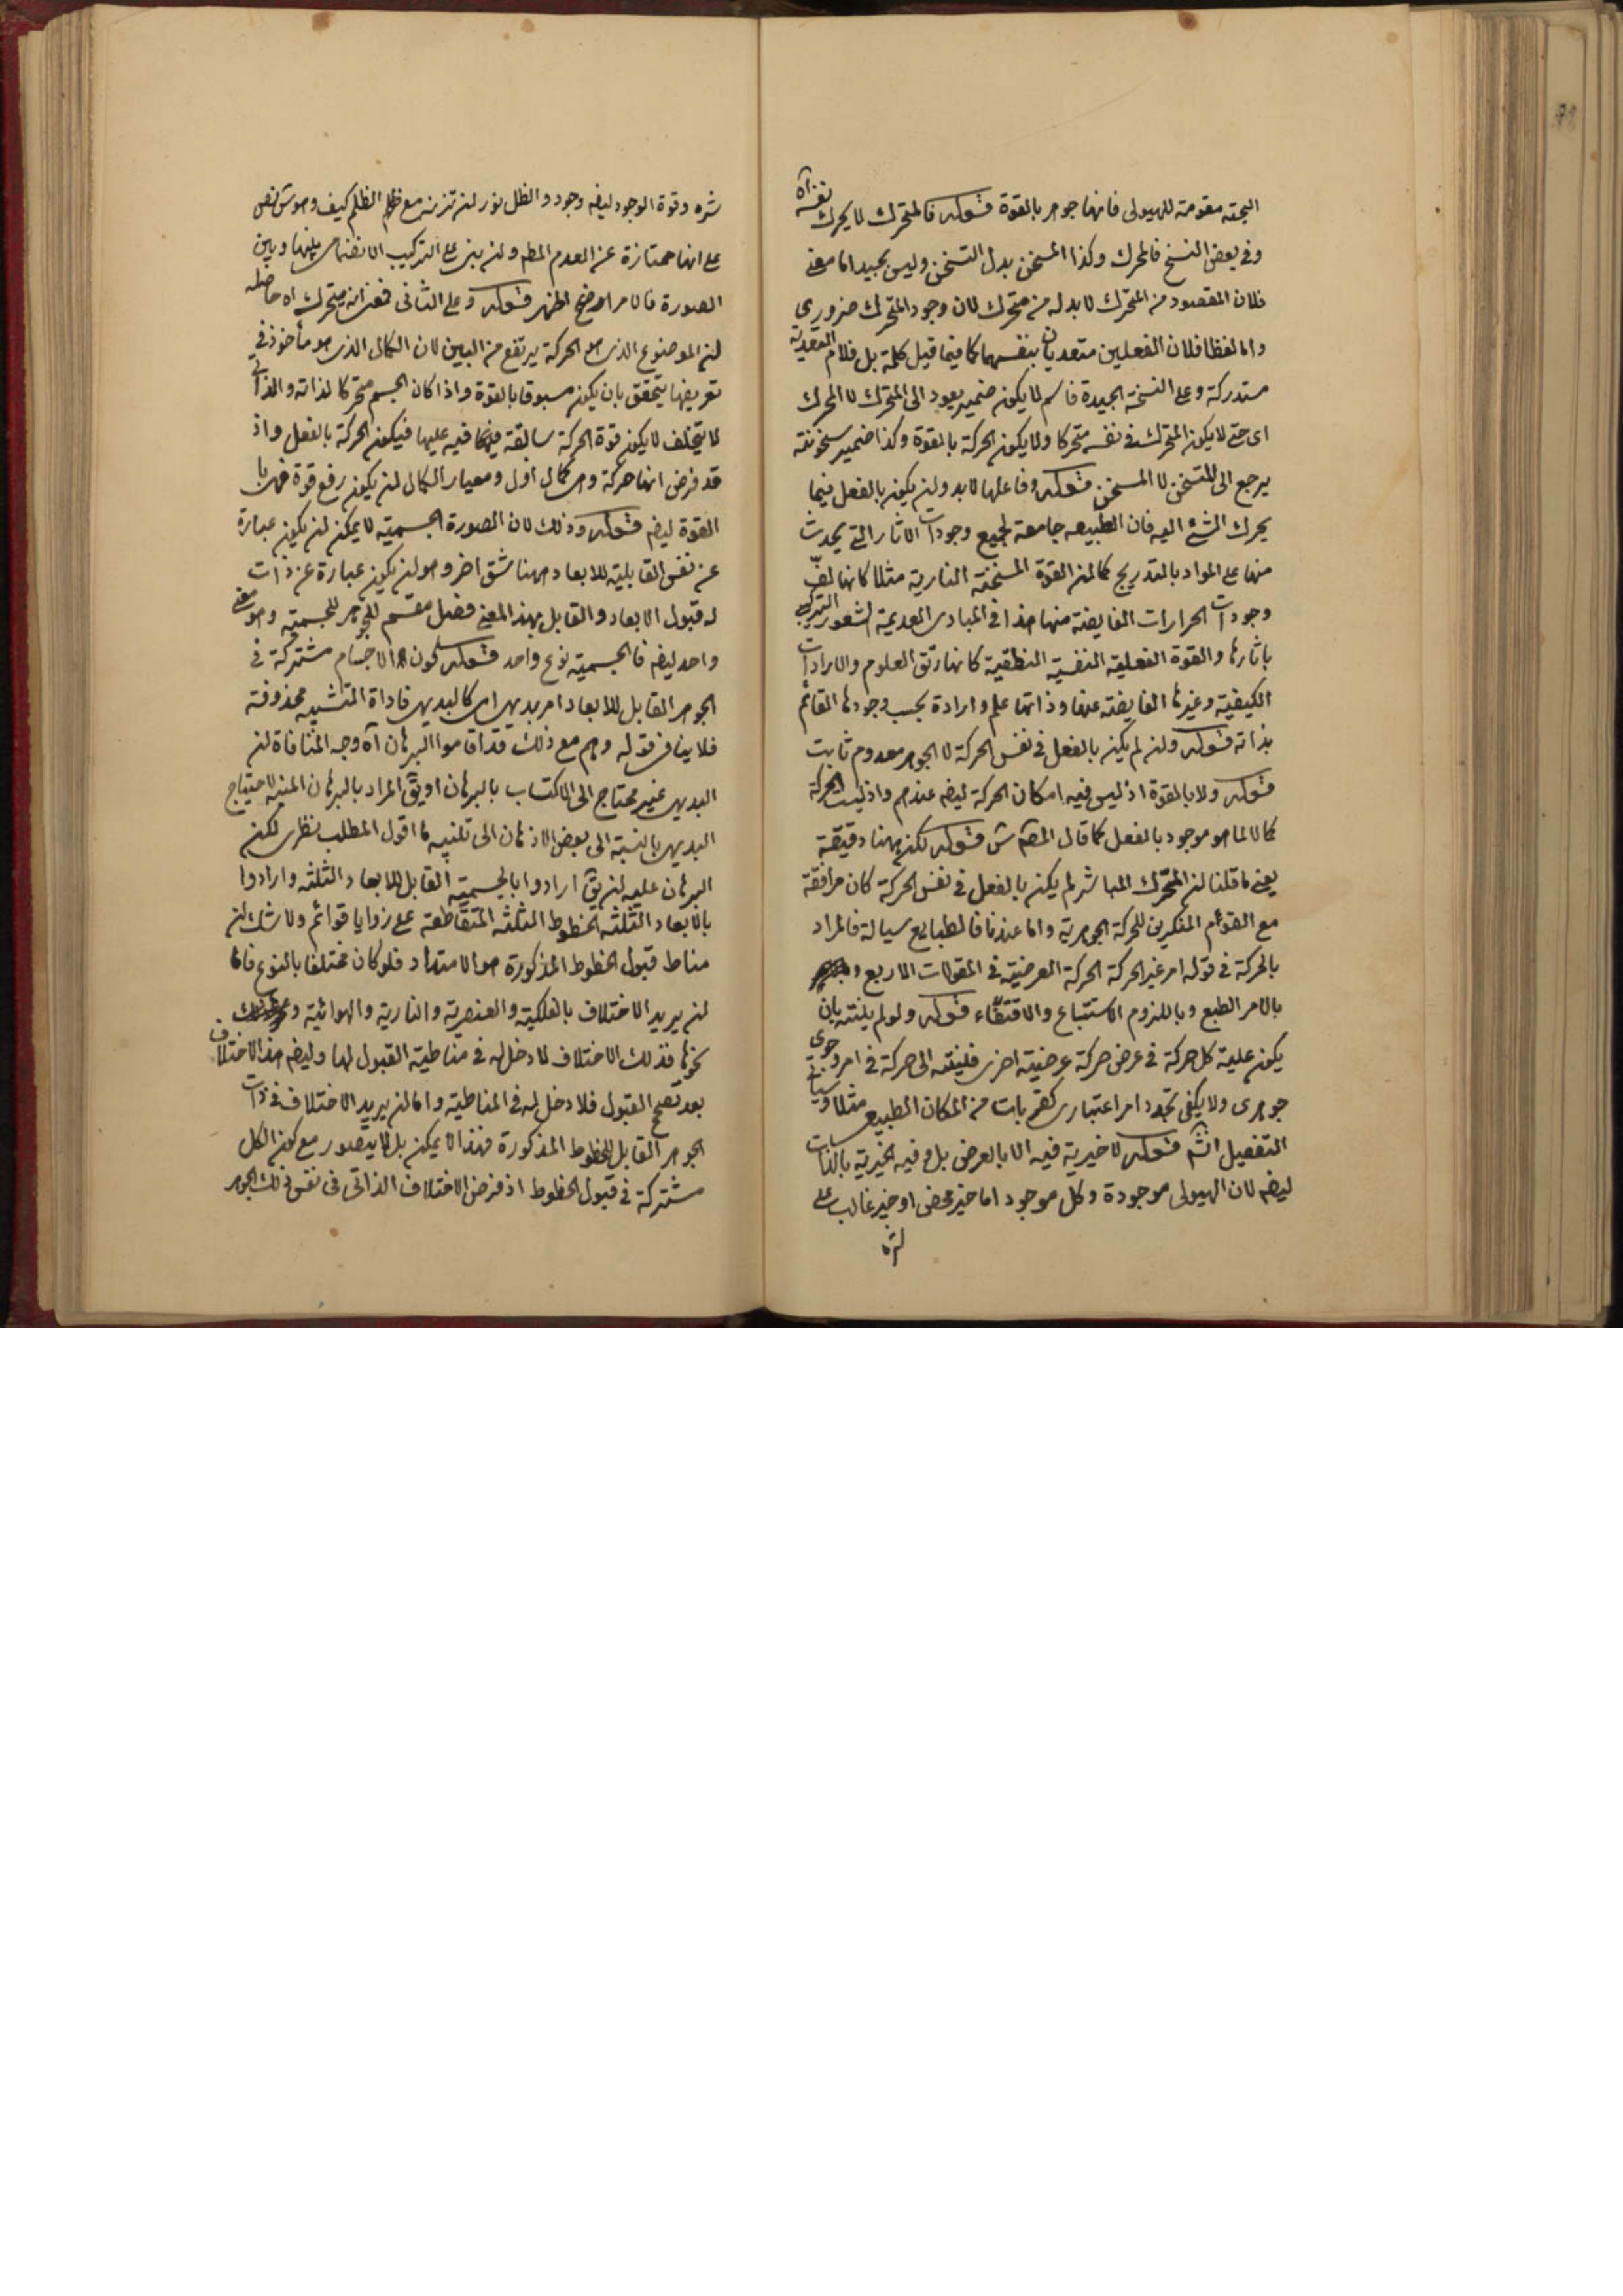 البحتة مقومة للهيولى فانها جوهر بالقوة قوله فالمتحرك لا يحرك نفسه آه
وفى بعض النسخ فالمحرك وكذا المسخن بدل التسخن وليس بجيد اما معنى
فلان المقصود من المتحرك لا بد له من متحرك لان وجود المتحرك ضرورى
واما لفظا فلان الفعلين متعديان بنفسهما كما فيما قيل كلمة بل فلام التعدية
مستدركة وعلى النسخة الجيدة فاسم لا يكون ضمير يعود الى المتحرك لا المحرك
اى حتى لا يكون المتحرك فى نفسه متحركا ولا يكون الحركة بالقوة وكذا ضمير سخونته
يرجع الى المتسخن لا المسخن قوله وفاعلها لا بد وان يكون بالفعل فيما
يحرك الشئ اليه فان الطبيعه جامعة لجميع وجودات الاثار التى يحدث
منها على المواد بالتدريج كما ان القوة المسخنة النارية مثلا كانها لفّ
وجودات الحرارات الفايضة منها هذا فى المبادى العديمة الشعور التركيبى
باثارها والقوة الفعلية النفسية النطقية كانها رتق العلوم والارادات
الكيفية وغيرها الفايضة عنها وذاتها علم وارادة بحسب وجودها القائم
بذاته قوله وان لم يكن بالفعل فى نفس الحركة لا الجوهر معدوم ثابت
قوله ولا بالقوة اذ ليس فيه امكان الحركة ايضا عندهم واذ ليست الحركة
كمالا لما هو موجود بالفعل كما قال المصـ ش قوله لكن ههنا دقيقة
يعنى ما قلنا ان المحرك المباشر لم يكن بالفعل فى نفس الحركة كان مرافقة
مع القوم المنكرين للحركة الجوهرية واما عندنا فالطبايع سيالة فالمراد
بالحركة فى قوله امر غير الحركة الحركة العرضية فى المقولات الاربع
بالامر الطبع وباللزوم الاستتباع والاقتفاء قوله ولو لم يلته بان
يكون علية كل حركة فى عرض حركة عرضية اخرى فلينته الى حركة فى امر وجودى
جوهرى ولا يكفى تجدد امر اعتبارى كقرابات من المكان الطبيعى مثلا وسياتى
التفصيل انشـ قوله لا خيرية فيه الا بالعرض بل وفيه الخيرية بالذات
ايضا لان الهيولى موجودة وكل موجود اما خير محض او خير غالب على
شره
شره وقوة الوجود ايضا وجود والظل نور ان تزنه مع الظلم كيف وهو ش نص
على انها ممتازة عن العدم المطـ وان بنى على التركيب الانضمامى بينها وبين
الصورة فالامر اوضح اظهر قوله وعلى الثانى فمعنى انه متحرك اه حاصله
ان الموضوع الذى هو الحركة يرتفع من البين لان الكمال الذى هو مأخوذ فى
تعريفها يتحقق بان يكون مسبوقا بالقوة واذا كان الجسم متحركا لذاته والذاتى
لا يتخلف لا يكون قوة الحركة سابقة فيه عليها فيكون الحركة بالفعل واذ
قد فرض انها حركة وهى كمال اول ومعيار الكمال ان يكون رفع قوة فهى با
القوة ايضا قوله وذلك لان الصورة الجسمية لا يمكن ان يكون عبارة
عن نفس القابلية للابعاد ههنا شق اخر وهو ان يكون عبارة عن ذات
له قبول الابعاد والقابل بهذا المعنى فصل مقسم للجوهر للجسمية وهو معنى
واحد ايضا فالجسمية نوع واحد قوله كون الاجسام مشتركة فى
الجوهر القابل للابعاد امر بديهى اى كالبديهى فاداة التشبيه محذوفة
فلا ينافى قوله وهم مع ذلك قد اقاموا البرهان آه وجه المنافاة ان
البديهى غير محتاج الى الاكتساب بالبرهان او يق المراد بالبرهان المنبه لاحتياج
البديهى بالنسبة الى بعض الاذهان الى تنبيه ما اقول المطلب نظرى لكن
البرهان عليه ان يق ارادوا بالجسمية القابل للابعاد الثلثه وارادوا
بالابعاد الثلثه الخطوط الثلثه المتقاطعة على زوايا قوائم ولا شك ان
مناط قبول الخطوط المذكورة هو الامتداد فلو كان مختلفا بالنوع فاما
ان يريد الاختلاف بالفلكية والعنصرية والنارية والهوائية و
نحوها فذلك الاختلاف لا دخل له فى مناطية القبول لها وايضا هذا الاختلاف
بعد تصحح القبول فلا دخل له فى المناطية واما ان يريد الاختلاف فى ذات
الجوهر القابل للخطوط المذكورة فهذا لا يمكن بل لا يتصور مع كون الكل
مشتركة فى قبول الخطوط اذ فرض الاختلاف الذاتى فى نفس ذلك الجوهر